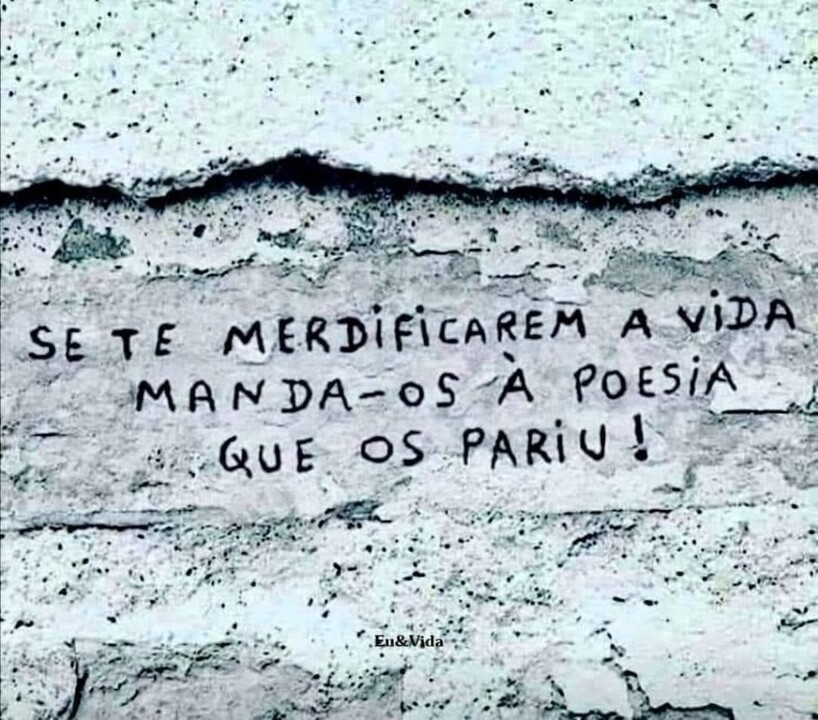 SE TE MERDiFiCAREM A ViDA
MANDA-OS À POESiA
QUE OS PARiU!
Eu&Vida